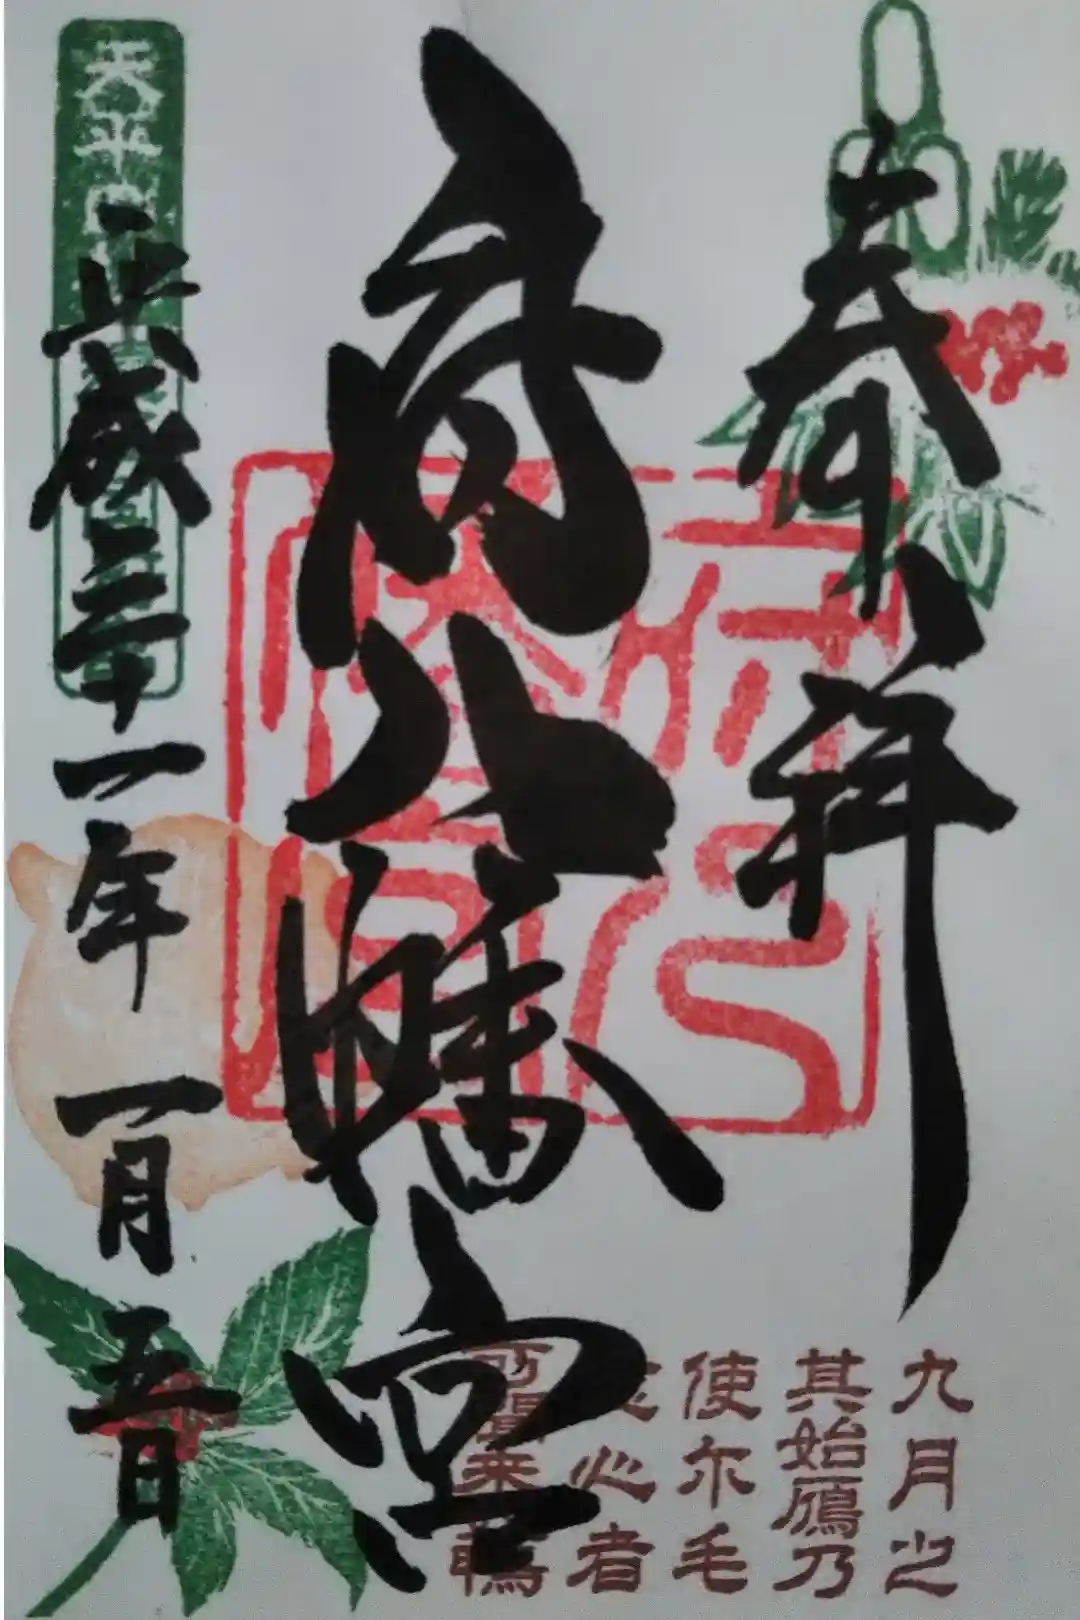 奉拝
府八幡宮
平成三十一年 一月五日
天平
九月之
其始鴈乃
使尓毛
念心者
所聞来奴鴨